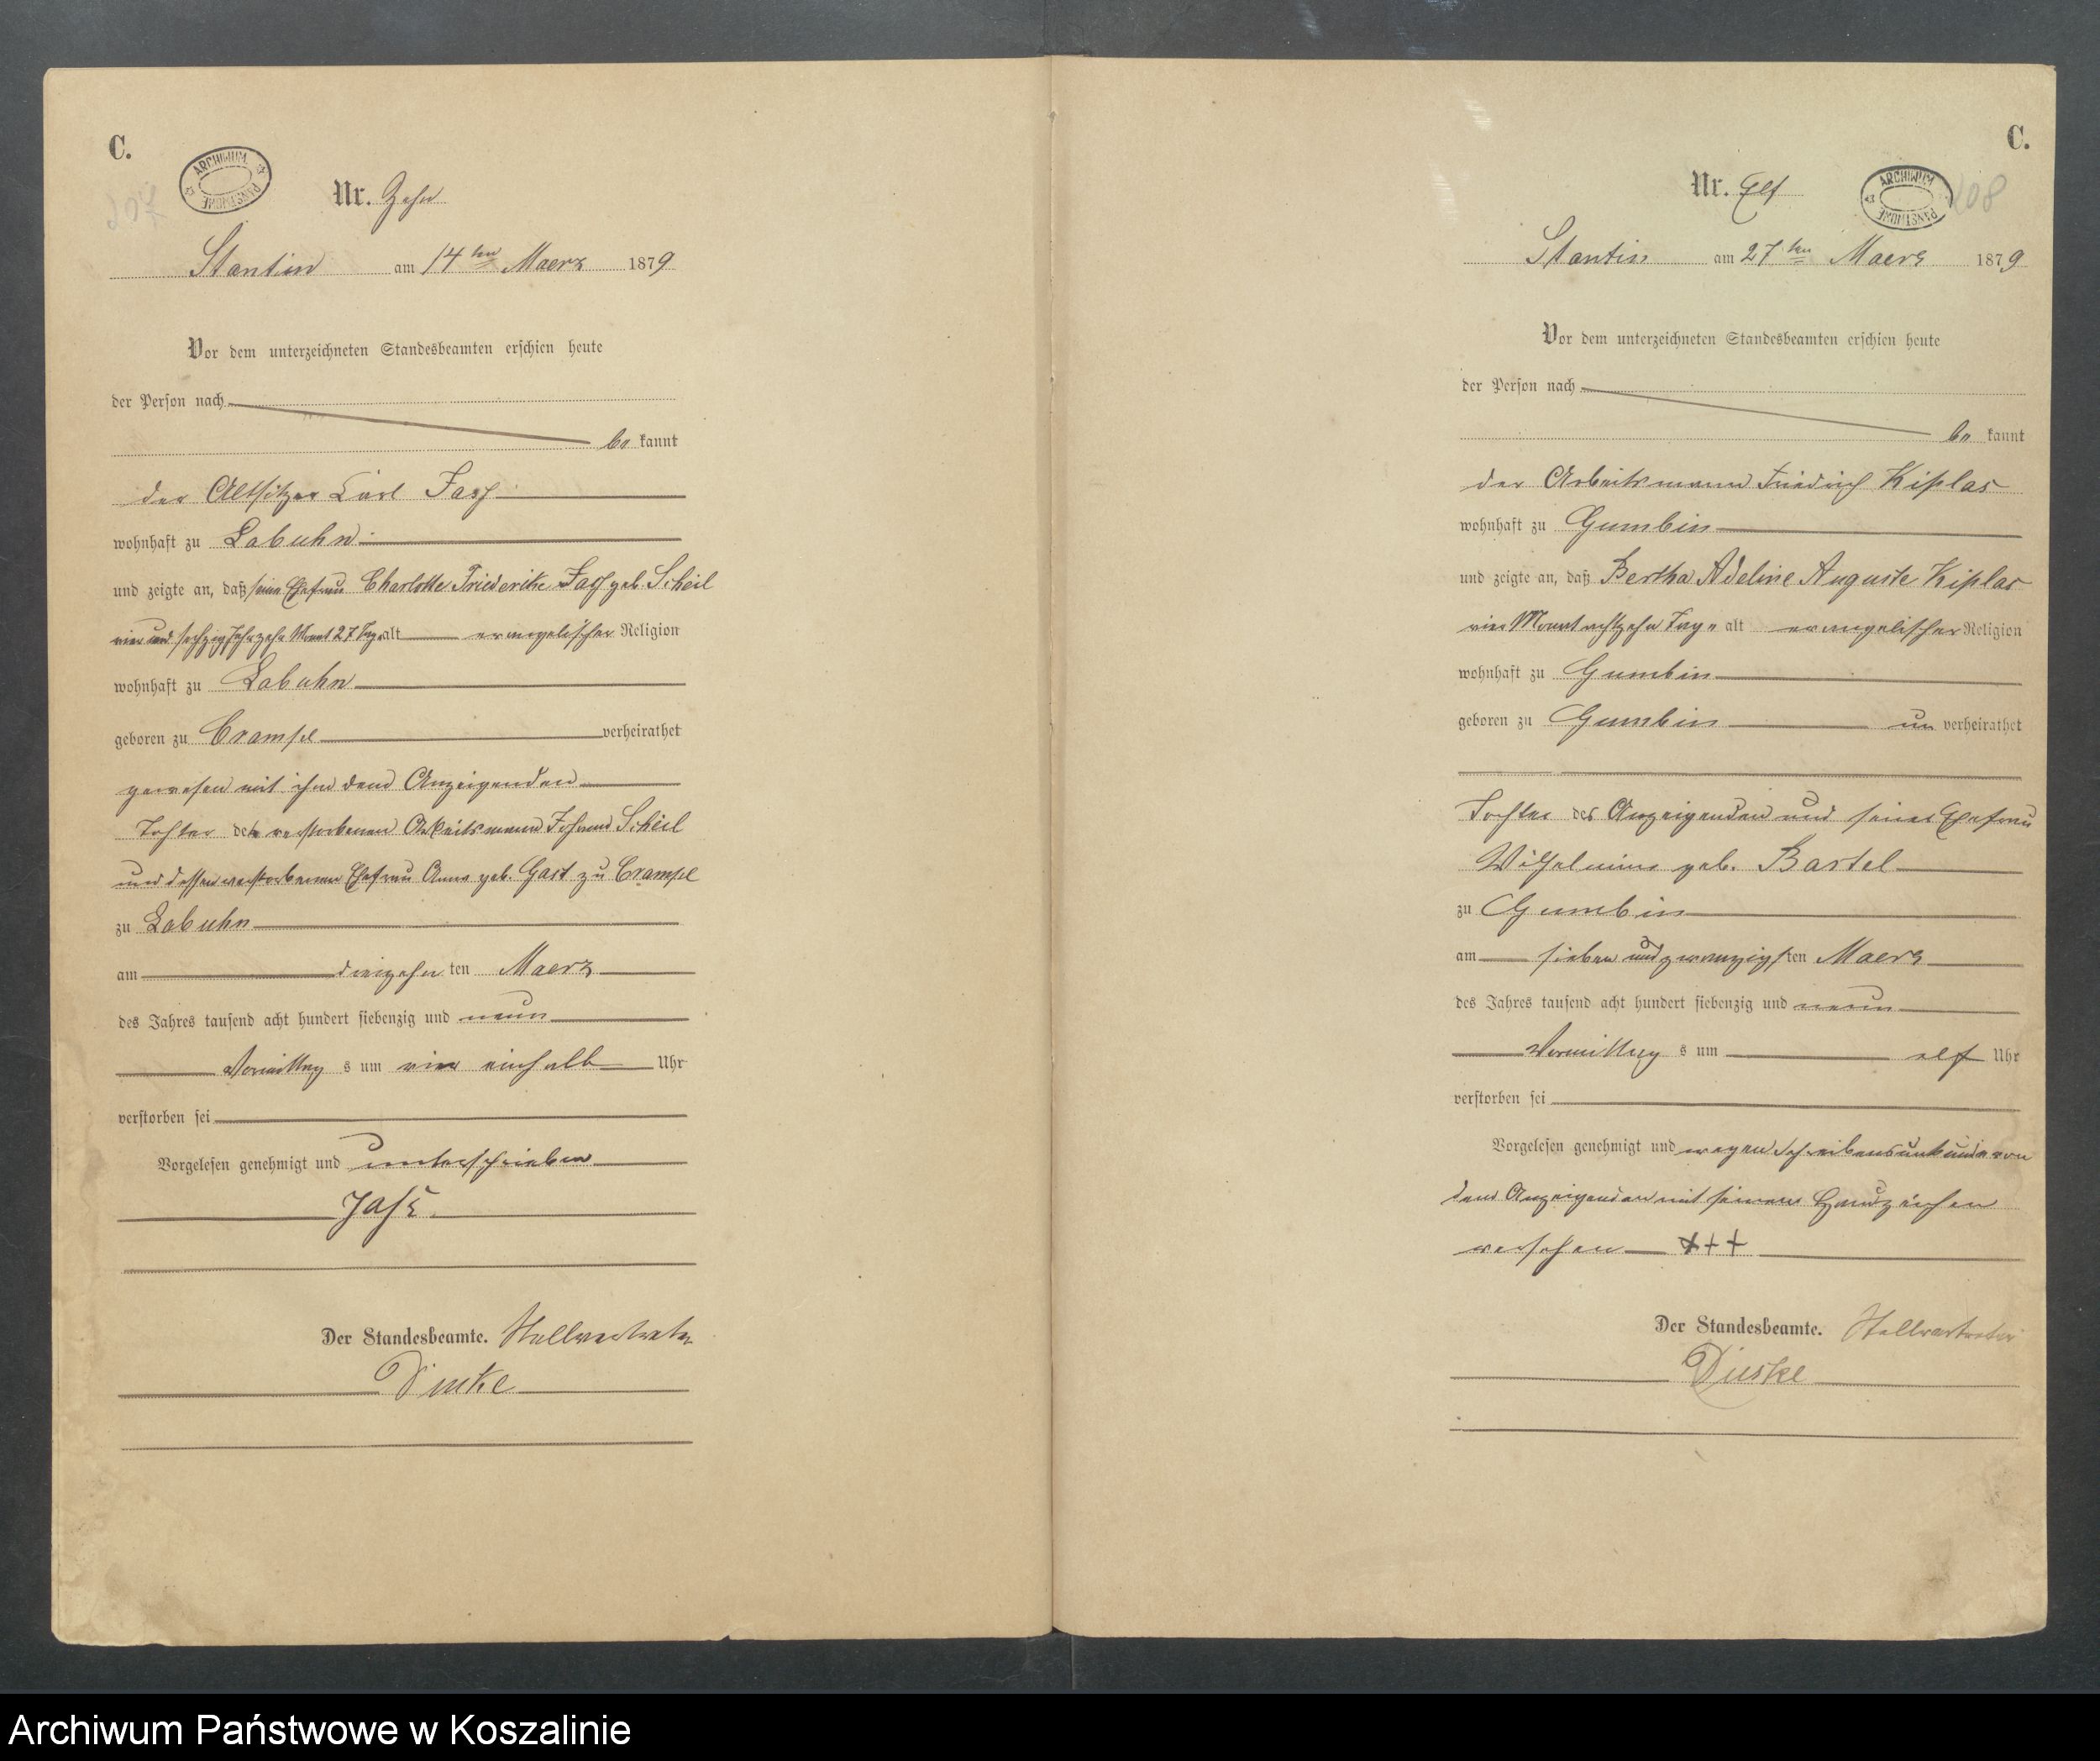 C.
ARCHIWUM PAŃSTWOWE
207
Nr. Zehn
Stantin am 14ten Maerz 1879
Vor dem unterzeichneten Standesbeamten erschien heute
der Person nach
be kannt
der Altsitzer Carl Jass
wohnhaft zu Labuhn
und zeigte an, daß seine Ehefrau Charlotte Friederike Jass geb. Scheil
vier und sechzig Jahr zehn Monat 27 Tage alt evangelischer Religion
wohnhaft zu Labuhn
geboren zu Crampe verheirathet
gewesen mit ihm dem Anzeigenden
Tochter des verstorbenen Arbeitsmann Johann Scheil
und dessen verstorbenen Ehefrau Anne geb. Gast zu Crampe
zu Labuhn
am dreizehn ten Maerz
des Jahres tausend acht hundert siebenzig und neun
Vormittag s um vier einhalb Uhr
verstorben sei
Vorgelesen genehmigt und unterschrieben
Jass
Der Standesbeamte. Stellvertreter
C.
ARCHIWUM PAŃSTWOWE
208
Nr. Elf
Stantin am 27ten Maerz 1879
Vor dem unterzeichneten Standesbeamten erschien heute
der Person nach
be kannt
der Arbeitsmann Friedrich Kißlas
wohnhaft zu Gumbin
und zeigte an, daß Bertha Adeline Auguste Kißlas
vier Monat achtzehn Tage alt evangelischer Religion
wohnhaft zu Gumbin
geboren zu Gumbin un verheirathet
Tochter des Anzeigenden und seiner Ehefrau
Wilhelmine geb. Bartel
zu Gumbin
am sieben und zwanzigsten Maerz
des Jahres tausend acht hundert siebenzig und neun
Vormittag s um elf Uhr
verstorben sei
Vorgelesen genehmigt und wegen Schreibensunkunde von
dem Anzeigenden mit seinem Handzeichen
versehen +++
Der Standesbeamte. Stellvertreter
Dieske
Archiwum Państwowe w Koszalinie